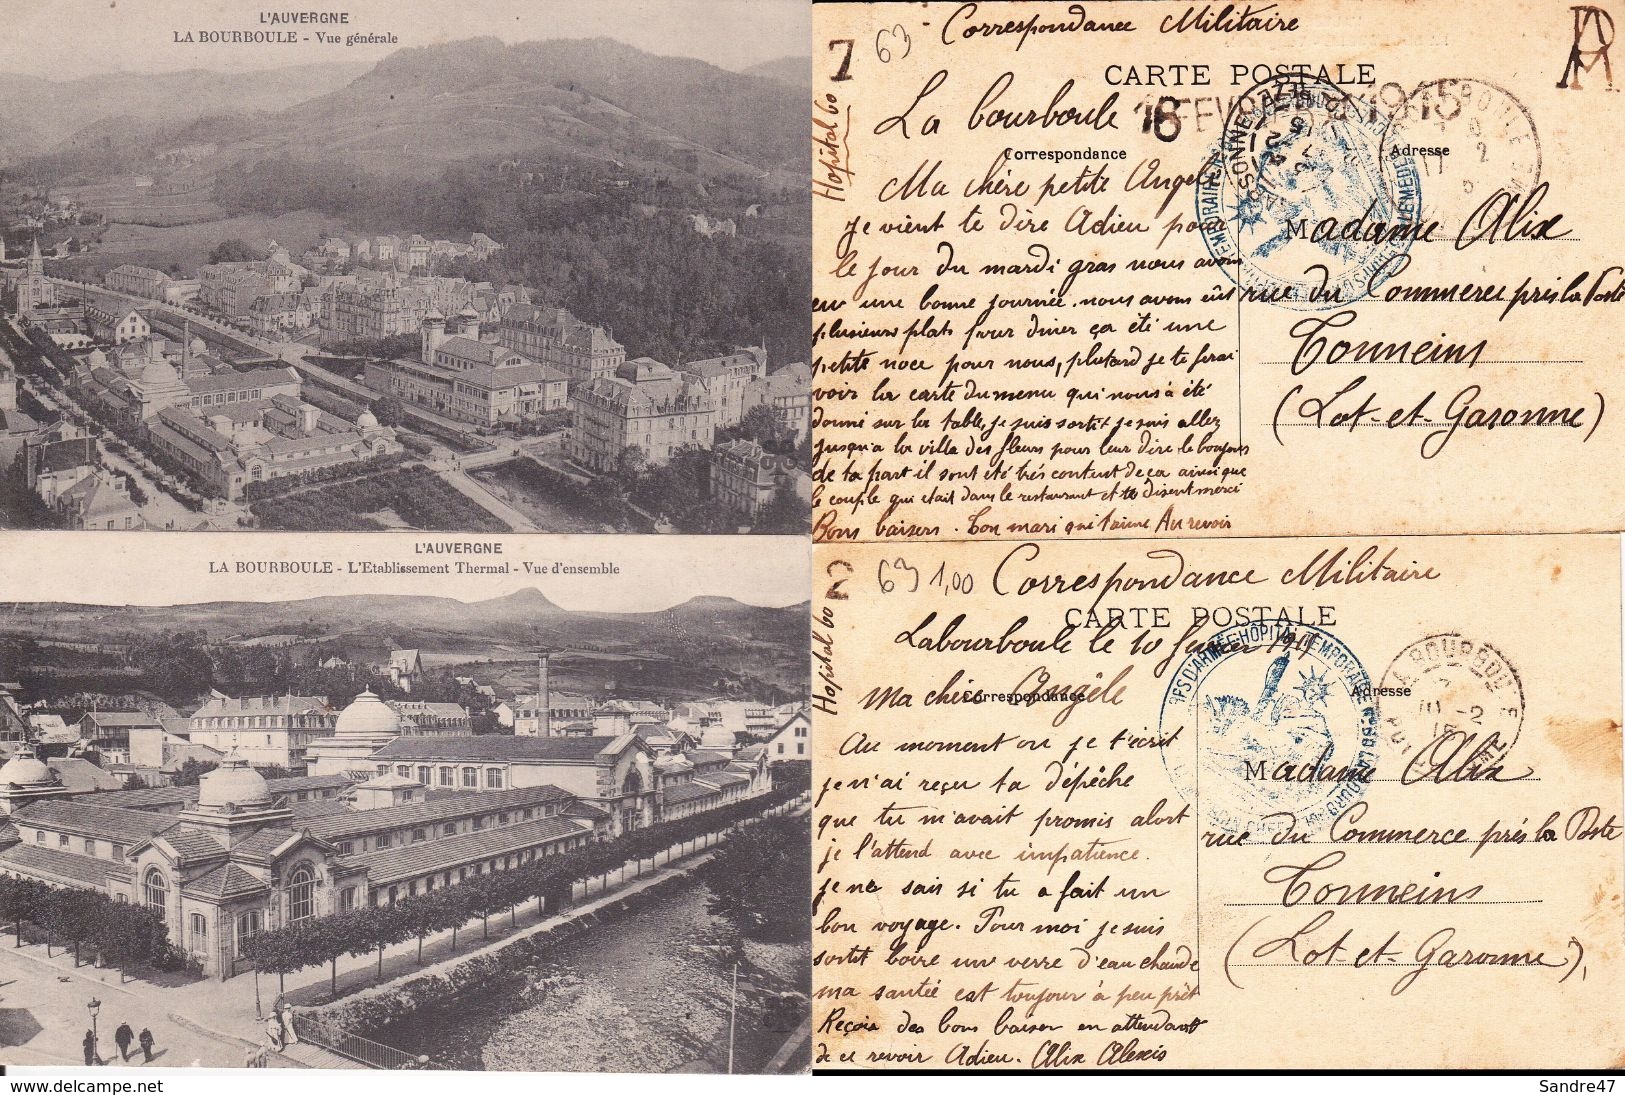 L'AUVERGNE
LA BOURBOULE - Vue générale
L'AUVERGNE
LA BOURBOULE - L'Etablissement Thermal - Vue d'ensemble
Correspondance Militaire
1
63
CARTE POSTALE
Hopital 60
La bourboule 16 FEVR 1915
Correspondance
Adresse
Ma chère petite Angele
je vient te dire Adieu pour
le jour du mardi gras nous avons
eu une bonne journée. nous avons eûs
plusieurs plats pour diner ça été une
petite noce pour nous, plutard je te ferai
voir la carte du menu qui nous à été
donni sur la table, je suis sortit je suis allez
jusqu'a la ville des fleurs pour leur dire le bonjour
de ta part il sont été très content de ça ainsi que
le couple qui etait dans le restaurant et te disent merci
Bons baisers. Ton mari qui t'aime Au revoir
Madame Alix
rue du Commerce près la Poste
Tonneins
(Lot-et-Garonne)
2
63 1,00
Correspondance Militaire
CARTE POSTALE
Hopital 60
Labourboule le 10
Correspondance
Adresse
Ma chère Angèle
Au moment ou je t'écrit
je n'ai reçu ta dépêche
que tu m'avait promis alort
je l'attend avec impatience.
je ne sair si tu a fait un
bon voyage. Pour moi je suis
sortit boire un verre d'eau chaude
ma santée est toujour à peu prèt
Reçois des bons baiser en attendant
de ce revoir Adieu. Alix Alexis
Madame Alix
rue du Commerce près la Poste
Tonneins
(Lot-et-Garonne),
HÔPITAL TEMPORAIRE
LA BOURBOULE
10 -2
https://www.delcampe.net
Sandre47